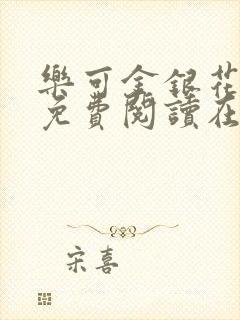 樂可金銀花
免費閱讀在
宋喜